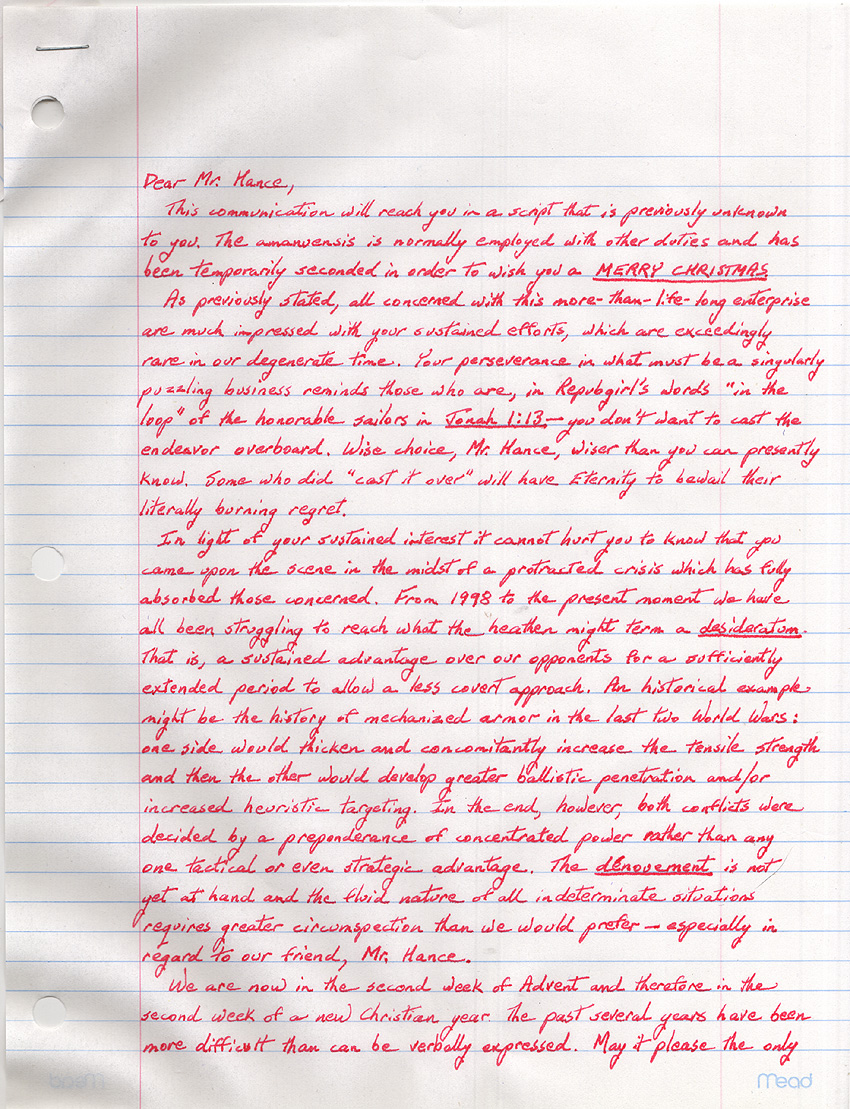 Dear Mr. Hance,
This communication will reach you in a script that is previously unknown
to you. The amanuensis is normally employed with other duties and has
been temporarily seconded in order to wish you a MERRY CHRISTMAS
As previously stated, all concerned with this more-than-life-long enterprise
are much impressed with your sustained efforts, which are exceedingly
rare in our degenerate time. Your perseverance in what must be a singularly
puzzling business reminds those who are, in Repubgirl's words "in the
loop" of the honorable sailors in Jonah 1:13 — you don't want to cast the
endeavor overboard. Wise choice, Mr. Hance, wiser than you can presently
know. Some who did "cast it over" will have Eternity to bewail their
literally burning regret.
In light of your sustained interest it cannot hurt you to know that you
came upon the scene in the midst of a protracted crisis which has fully
absorbed those concerned. From 1998 to the present moment we have
all been struggling to reach what the heathen might term a desideratum.
That is, a sustained advantage over our opponents for a sufficiently
extended period to allow a less covert approach. An historical example
might be the history of mechanized armor in the last two World Wars:
one side would thicken and concomitantly increase the tensile strength
and then the other would develop greater ballistic penetration and/or
increased heuristic targeting. In the end, however, both conflicts were
decided by a preponderance of concentrated power rather than any
one tactical or even strategic advantage. The denouement is not
yet at hand and the fluid nature of all indeterminate situations
requires greater circumspection than we would prefer — especially in
regard to our friend, Mr. Hance.
We are now in the second week of Advent and therefore in the
second week of a new Christian year. The past several years have been
more difficult than can be verbally expressed. May it please the only
Mead